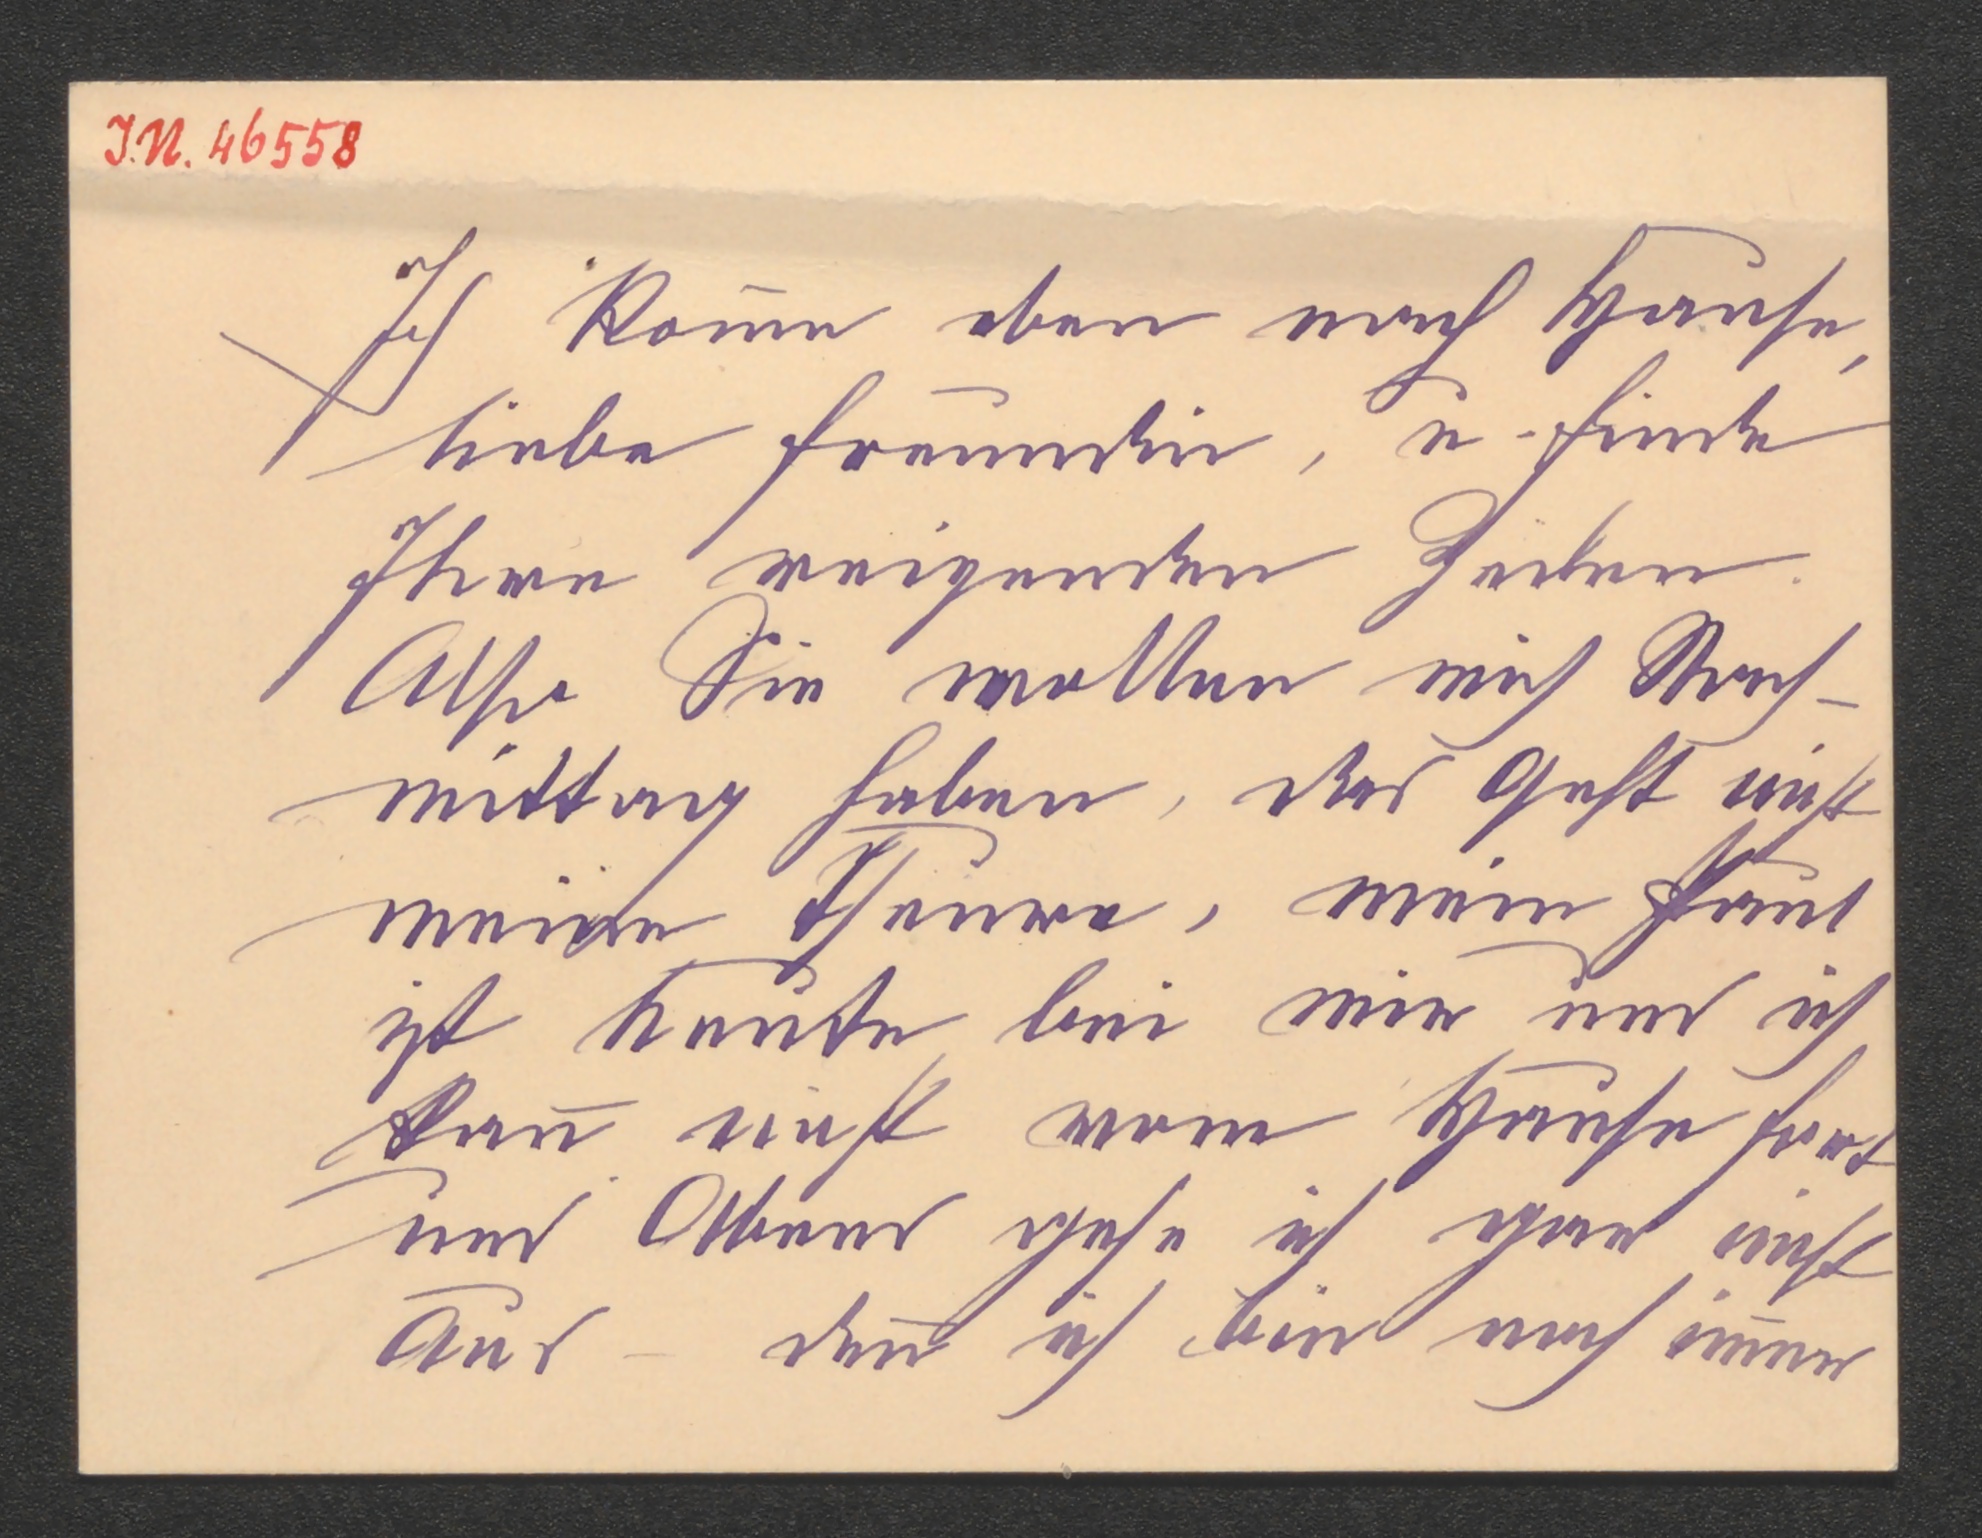 J.N. 46558
Ich kom̄e eben nach Hause,
liebe Freundin, u. finde
Ihre reizenden Zeilen.
Also Sie wollen mich Nach-
mittag haben, das geht nicht
meine Theure, mein Paul
ist heute bei mir und ich
kan̄ nicht vom Hause fort
und Abend gehe ich gar nicht
aus – den̄ ich bin noch im̄er